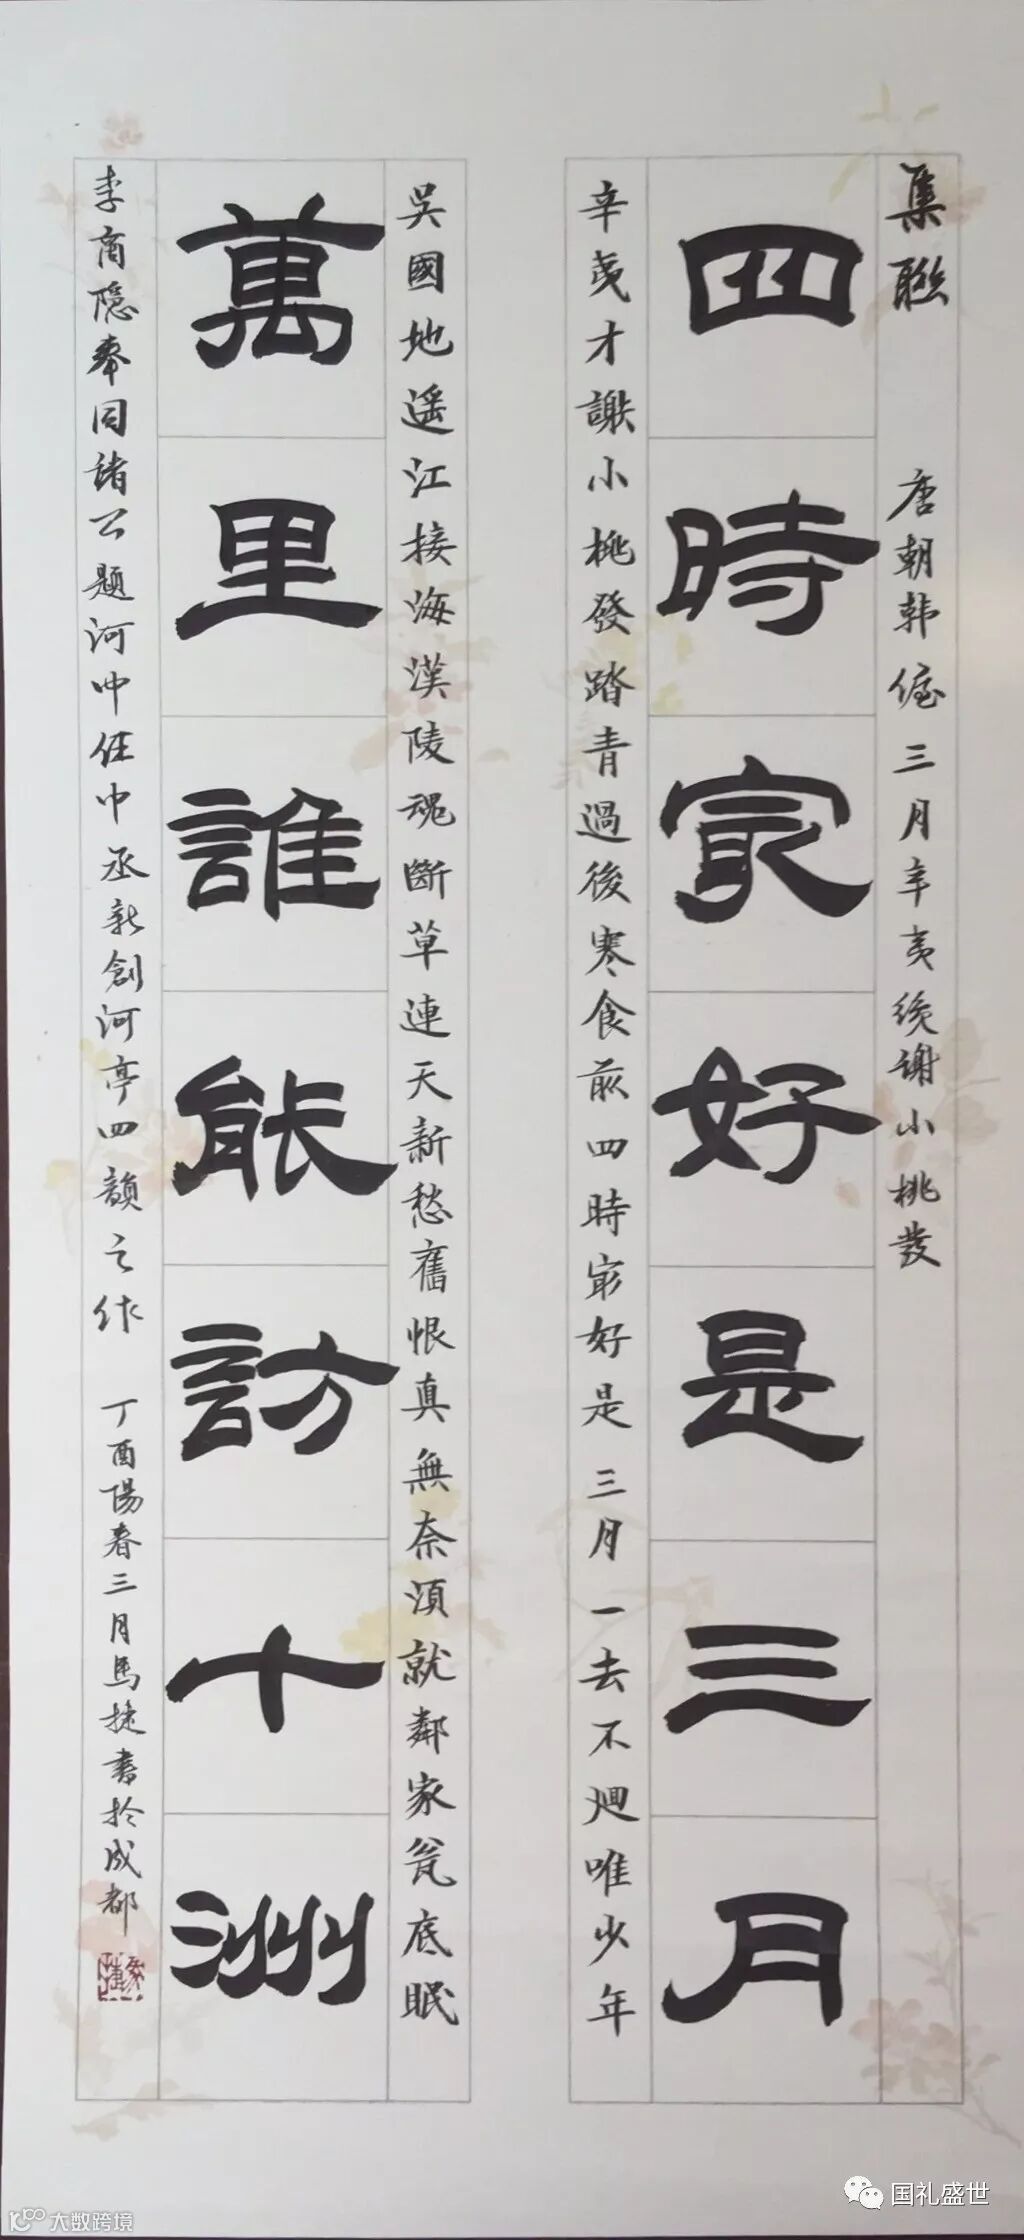 集聯 唐朝韩偓三月辛夷後谢小桃發
四時冣好是三月
辛夷才謝小桃發踏青過後寒食前四時冣好是三月一去不迴唯少年
吳國地遥江接海漢陵魂斷草連天新愁舊恨真無奈須就鄰家瓮底眠
萬里誰能訪十洲
李商隐奉同諸公题河中任中丞新創河亭四韻之作 丁酉陽春三月馬捷書於成都
国礼盛世
大数跨境